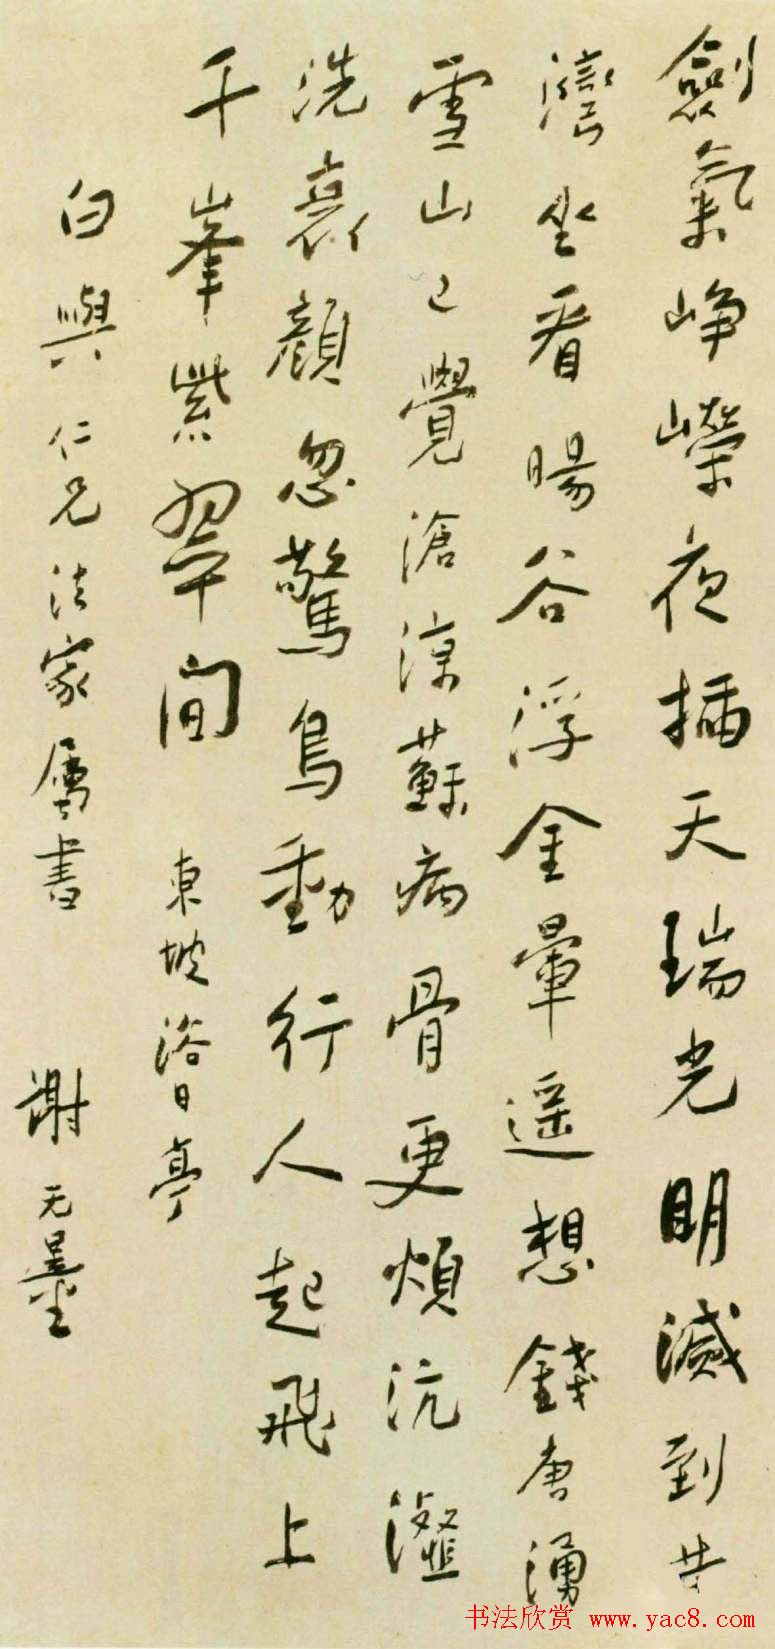 劍氣崢嶸夜插天瑞光明滅到黃
灣坐看暘谷浮金暈遥想錢唐湧
雪山已覺滄涼蘇病骨更煩沆瀣
洗衰顔忽驚鳥動行人起飛上
千峯紫翠間 東坡浴日亭
白嶼仁兄法家屬書 謝无量
书法欣赏 www.yac8.com